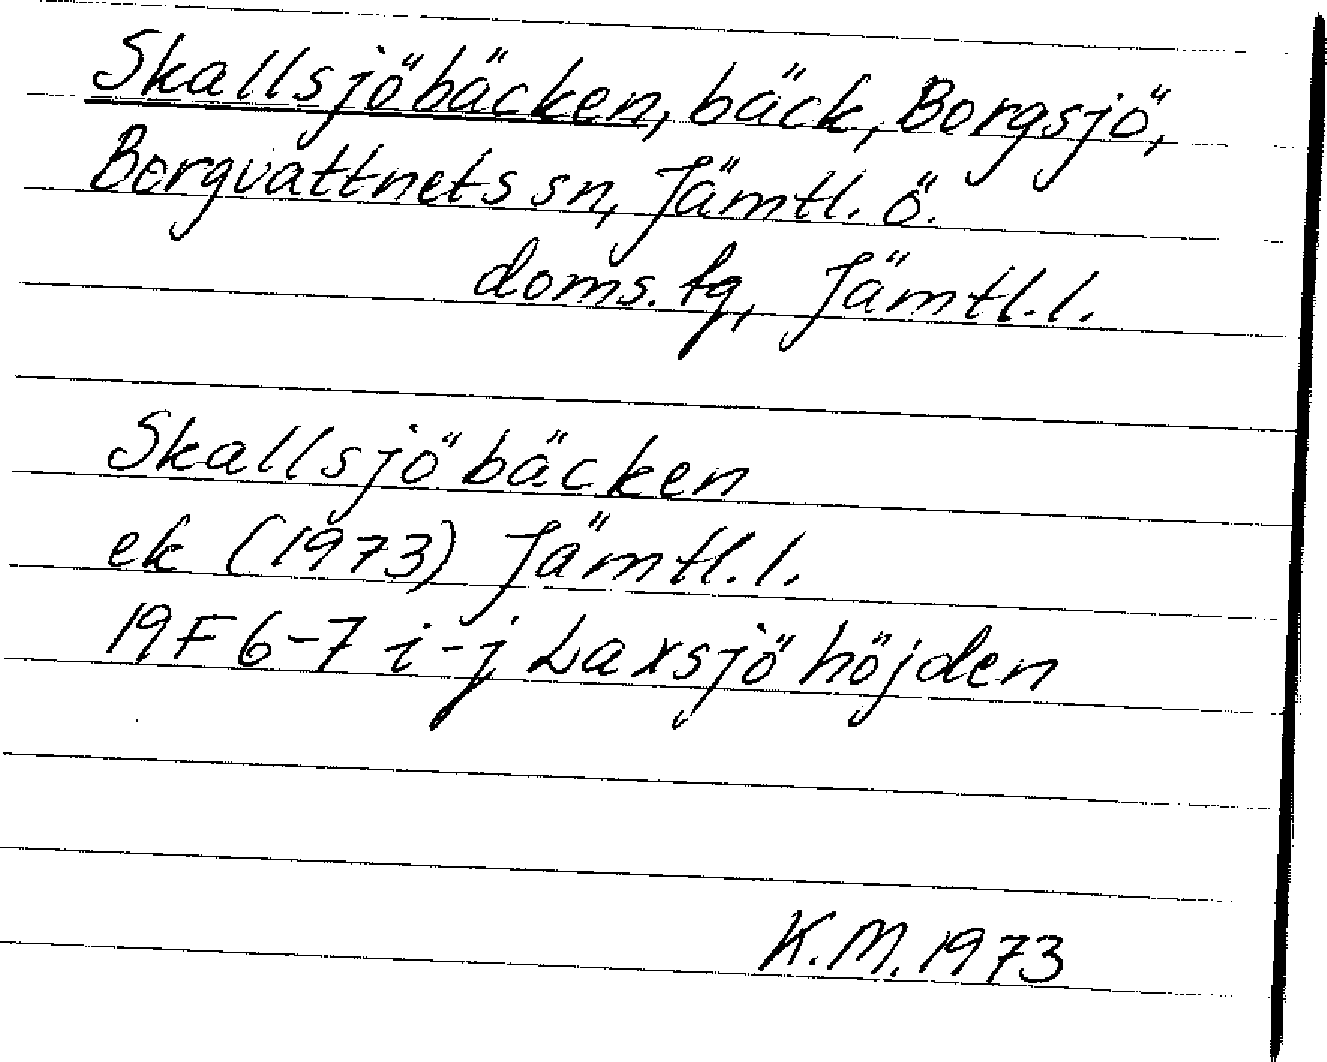 Skallsjöbäcken, bäck, Borgsjö,
Borgvattnets sn, Jämtl. ö.
doms. fg, Jämtl. l.
Skallsjöbäcken
ek (1973) Jämtl. l.
19F 6-7 i-j Laxsjöhöjden
K.M. 1973